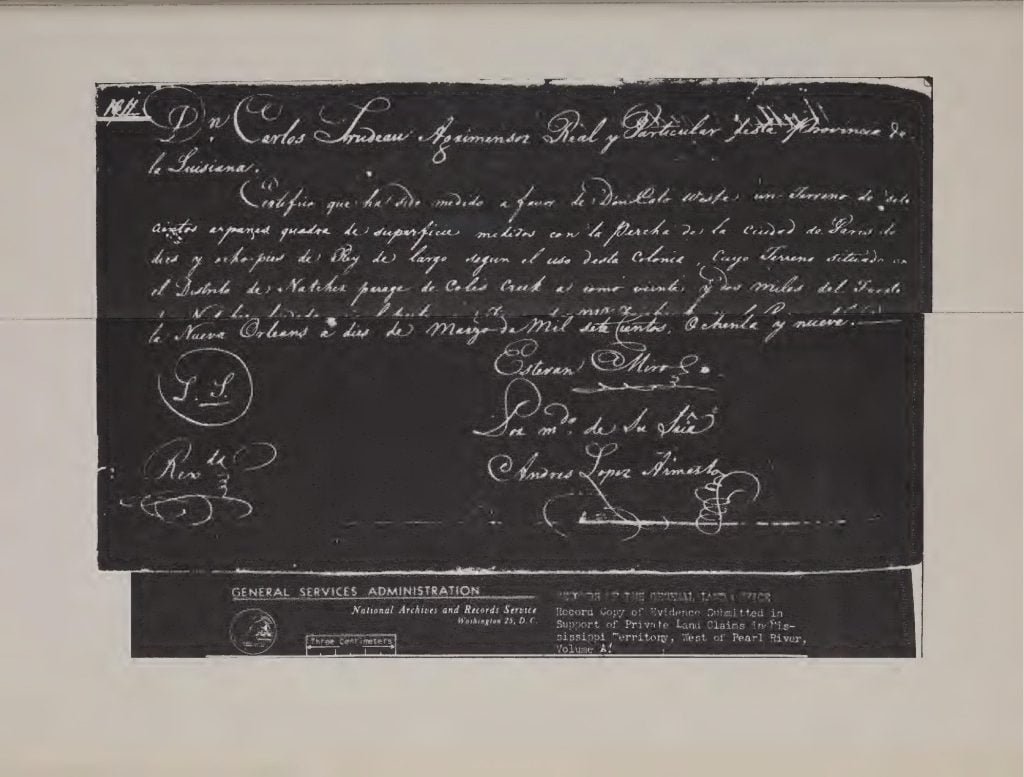 Dn Carlos Trudeau Agrimensor Real y Particular desta Provincia de
la Luisiana.
Certifico que ha sido medido a favor de Don Cato Weste un Terreno de sete
cientos arpanes quadra de superficie medidos con la Percha de la Ciudad de Paris de
dies y ocho pies de Rey de largo segun el uso desta Colonia, Cuyo Terreno situado en
el Distrito de Natchez parage de Coles Creek a como viente y dos milas del Fuerte
la Nueva Orleans a dies de Marzo de Mil sete Cientos, Ochenta y nueve.
Estevan Miro
L. S
Por mdo. de Su Sria
Rexda
Andres Lopez Armesto
GENERAL SERVICES ADMINISTRATION
National Archives and Records Service
Washington 25, D.C.
Three Centimeters
RECORDS OF THE GENERAL LAND OFFICE
Record Copy of Evidence Submitted in
Support of Private Land Claims in Mis-
sissippi Territory, West of Pearl River,
Volume A.